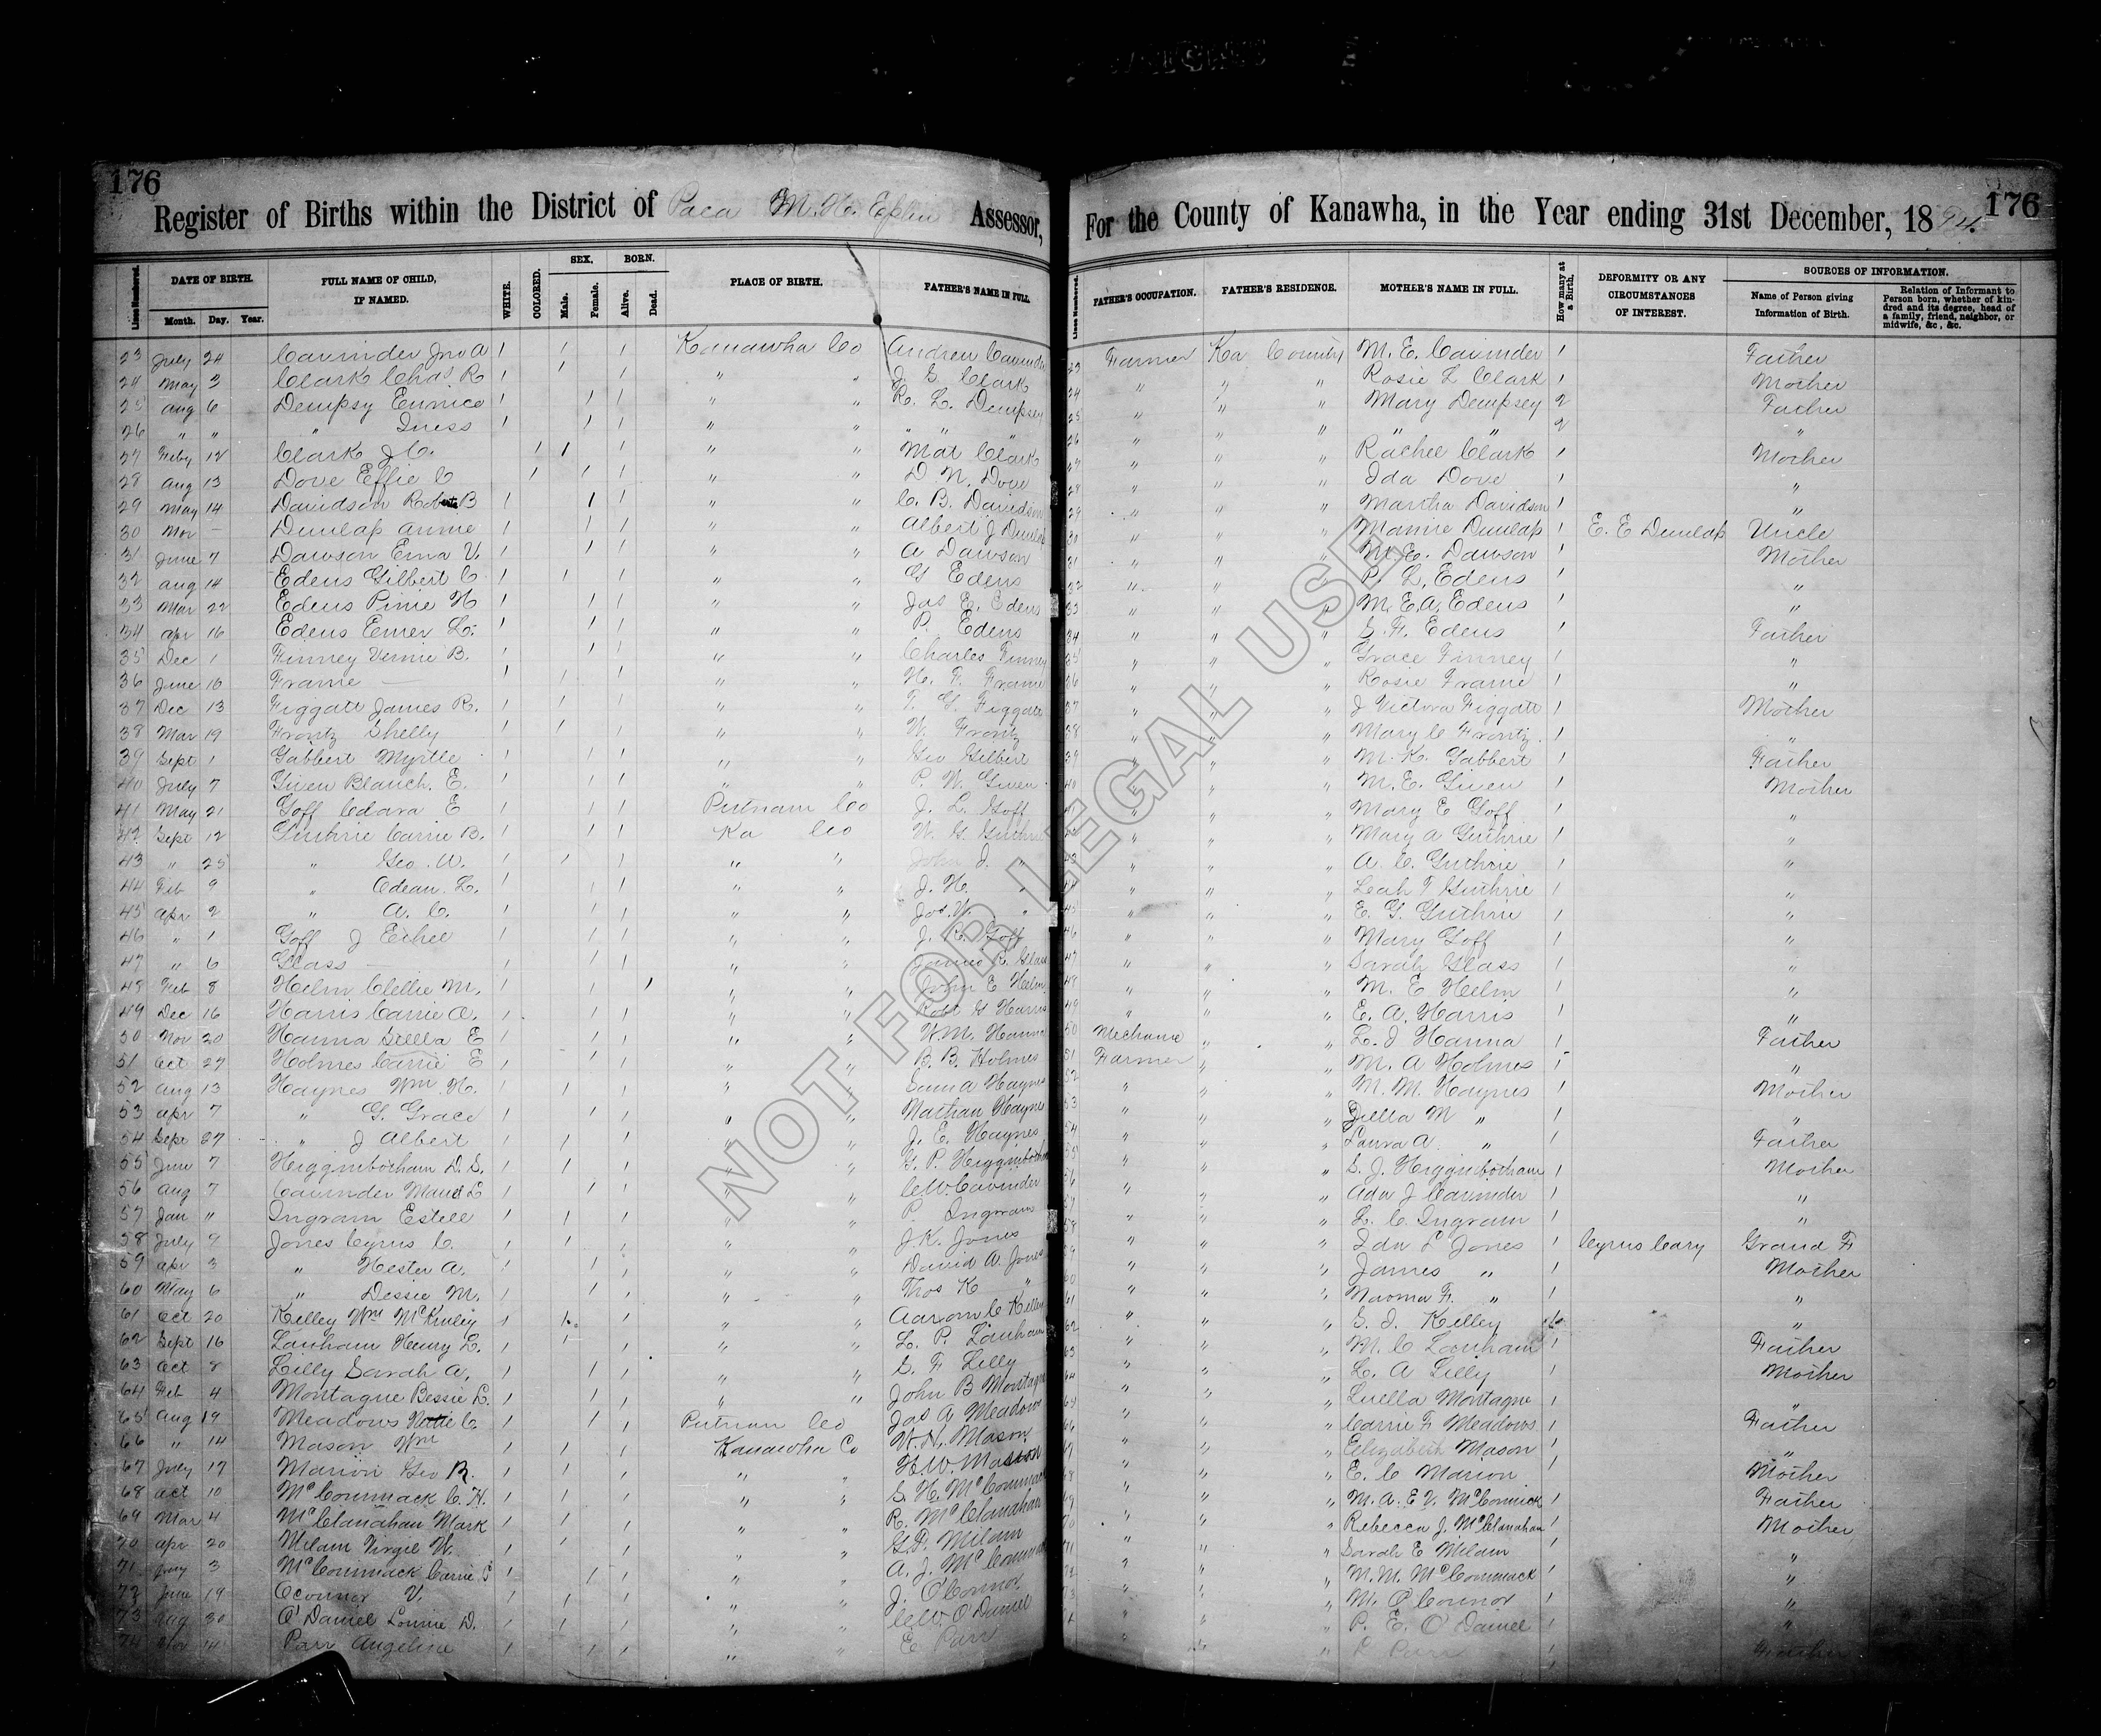 176
Register of Births within the District of Poca M. H. Assessor,
For the County of Kanawha, in the Year ending 31st December, 1894.
176
Lines Numbered. DATE OF BIRTH. Month. Day. Year. FULL NAME OF CHILD, IF NAMED. WHITE. COLORED. SEX. Male. Female. BORN. Alive. Dead. PLACE OF BIRTH. FATHER'S NAME IN FULL.
Lines Numbered. FATHER'S OCCUPATION. FATHER'S RESIDENCE. MOTHER'S NAME IN FULL. How many at a Birth. DEFORMITY OR ANY CIRCUMSTANCES OF INTEREST. SOURCES OF INFORMATION. Name of Person giving Information of Birth. Relation of Informant to Person born, whether of kindred and its degree, head of a family, friend, neighbor, or midwife, &c., &c.
23 July 24 Cavinder Jno A 1 1 1 Kanawha Co Andrew Cavinder 23 Farmer Ka County M. E. Cavinder 1 Father
24 May 3 Clark Chas R 1 1 1 " " J. G. Clark 24 " " " Rosie L Clark 1 Mother
25 Aug 6 Dempsy Eunice 1 1 1 " " R. L. Dempsey 25 " " " Mary Dempsey 2 Father
26 " " " Iness 1 1 1 " " " " " 26 " " " " " 2 "
27 Feby 12 Clark J. C. 1 1 1 " " Mat Clark 27 " " " Rachel Clark 1 Mother
28 Aug 13 Dove Effie C 1 1 1 " " D. N. Dove 28 " " " Ida Dove 1 "
29 May 14 Davidson Roberta B 1 1 1 " " C. B. Davidson 29 " " " Martha Davidson 1 "
30 Mar – Dunlap Annie 1 1 1 " " Albert J Dunlap 30 " " " Mamie Dunlap 1 E. E Dunlap Uncle
31 June 7 Dawson Erna V. 1 1 1 " " A Dawson 31 " " " M. E. Dawson 1 Mother
32 Aug 14 Edens Gilbert C 1 1 1 " " G Edens 32 " " " P. L. Edens 1 "
33 Mar 22 Edens Pinie H 1 1 1 " " Jas E. Edens 33 " " " M. E. A. Edens 1 "
34 Apr 16 Edens Emer L. 1 1 1 " " P. Edens 34 " " " S. F. Edens 1 Father
35 Dec 1 Finney Vernie B. 1 1 1 " " Charles Finney 35 " " " Grace Finney 1 "
36 June 10 Frame — 1 1 1 " " H. F. Frame 36 " " " Rosie Frame 1 "
37 Dec 13 Figgatt James R. 1 1 1 " " T. G. Figgatt 37 " " " J Victora Figgatt 1 Mother
38 Mar 19 Frontz Shelly 1 1 1 " " W. Frontz 38 " " " Mary C Frontz 1 "
39 Sept 1 Gabbert Myrtle 1 1 1 " " Geo Gilbert 39 " " " M. K. Gabbert 1 Father
40 July 7 Given Blanch. E. 1 1 1 " " P. W. Given 40 " " " M. E. Given 1 Mother
41 May 21 Goff Clara E 1 1 1 Putnam Co J. L. Goff 41 " " " Mary E Goff 1 "
42 Sept 12 Guthrie Carrie B. 1 1 1 Ka Co W. G Guthrie 42 " " " Mary A Guthrie 1 "
43 " 25 " Geo. W. 1 1 1 " " John J. " 43 " " " A. C. Guthrie 1 "
44 Feb 9 " Odean. L. 1 1 1 " " J. H. " 44 " " " Leah T Guthrie 1 "
45 Apr 2 " A. C. 1 1 1 " " Jos. W. " 45 " " " E. G. Guthrie 1 "
46 " 1 Goff J Ethel 1 1 1 " " J. C. Goff 46 " " " Mary Goff 1 "
47 " 6 Glass — 1 1 1 " " James R. Glass 47 " " " Sarah Glass 1 "
48 Feb 8 Helm Clellie M. 1 1 1 " " John E Helm 48 " " " M. E Helm 1 "
49 Dec 16 Harris Carrie A. 1 1 1 " " Robt G Harris 49 " " " E. A. Harris 1 "
50 Nov 20 Hanna Stella E 1 1 1 " " W. M. Hanna 50 Mechanic " " L. J Hanna 1 Father
51 Oct 27 Holmes Carrie E 1 1 1 " " B. B. Holmes 51 Farmer " " M. A Holmes 1 "
52 Aug 13 Haynes Wm. H. 1 1 1 " " Sam A Haynes 52 " " " M. M. Haynes 1 Mother
53 Apr 7 " G. Grace 1 1 1 " " Nathan Haynes 53 " " " Zella M " 1 "
54 Sept 27 " J Albert 1 1 1 " " J. E. Haynes 54 " " " Laura A. " 1 Father
55 June 7 Higginbotham D. S. 1 1 1 " " G. P. Higginbotham 55 " " " S. J. Higginbotham 1 Mother
56 Aug 7 Cavinder Maud L 1 1 1 " " C. W. Cavinder 56 " " " Ada J Cavinder 1 "
57 Jan " Ingram Estell 1 1 1 " " P. Ingram 57 " " " L. C. Ingram 1 "
58 July 9 Jones Cyrus C. 1 1 1 " " J. K. Jones 58 " " " Ida L Jones 1 Cyrus Cary Grand F
59 Apr 3 " Hester A. 1 1 1 " " David A. Jones 59 " " " James " 1 Mother
60 May 6 " Dessie M. 1 1 1 " " Thos K " 60 " " " Naoma F. " 1 "
61 Oct 20 Kelley Wm McKinley 1 1 1 " " Aaron C Kelley 61 " " " S. J. Kelley "
62 Sept 16 Lanham Henry L. 1 1 1 " " L. P. Lanham 62 " " " M. C Lanham 1 Father
63 Oct 8 Lilly Sarah A. 1 1 1 " " S. F Lilly 63 " " " L. A Lilly 1 Mother
64 Feb 4 Montague Bessie L. 1 1 1 " " John B Montague 64 " " " Luella Montague 1 "
65 Aug 19 Meadows Nettie C. 1 1 1 Putnam Co Jas A Meadows 65 " " " Carrie F Meadows 1 Father
66 " 14 Mason Wm 1 1 1 Kanawha Co W. H. Mason 66 " " " Elizabeth Mason 1 "
67 July 17 Marion Geo R. 1 1 1 " " H. W. 67 " " " E. C Marion 1 Mother
68 Oct 10 McCormack C. H. 1 1 1 " " S. H. McCormack 68 " " " M. A. E. V. McCormick 1 Father
69 Mar 4 McClanahan Mark 1 1 1 " " R. McClanahan 69 " " " Rebecca J. McClanaham 1 Mother
70 Apr 20 Milam Virgil W. 1 1 1 " " G. F. Milam 70 " " " Sarah E Milam 1 "
71 3 McCormack Carrie 1 1 1 " " A. J. McCormack 71 " " " M. M. McCormack 1 "
72 June 19 Oconnor V. 1 1 1 " " J. O'Connor 72 " " " M. O'Connor 1 "
73 Aug 30 O'Daniel Lonnie D. 1 1 1 " " C. W. O'Daniel 73 " " " P. E. O'Daniel 1 "
74 Nov 14 Parr Angeline 1 1 1 " " E Parr 74 " " " Parr 1 Father
NOT FOR LEGAL USE.